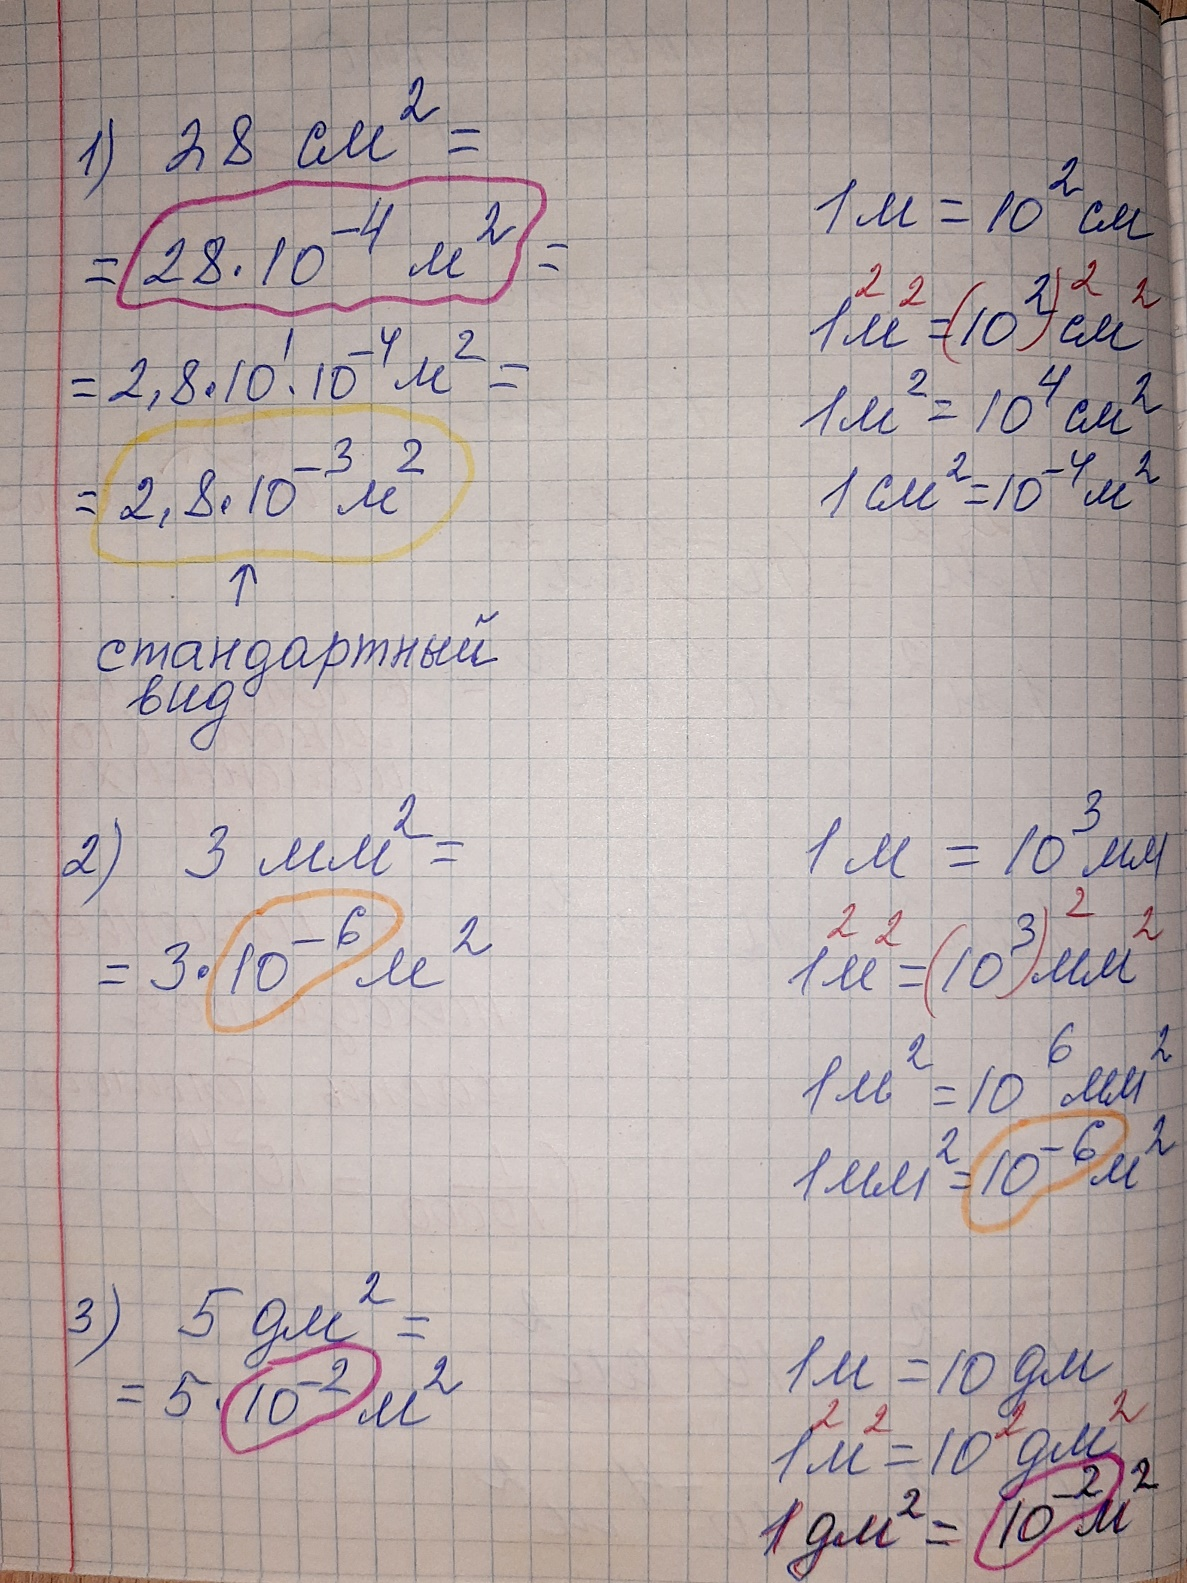 1) 28 см² =
= 28·10⁻⁴ м² =
= 2,8·10¹·10⁻⁴ м² =
= 2,8·10⁻³ м²
↑
стандартный
вид
1м = 10² см
1²м² = (10²)² см²
1м² = 10⁴ см²
1см² = 10⁻⁴ м²
2) 3 мм² =
= 3·10⁻⁶ м²
1м = 10³ мм
1²м² = (10³)² мм²
1м² = 10⁶ мм²
1мм² = 10⁻⁶ м²
3) 5 дм² =
= 5·10⁻² м²
1м = 10 дм
1²м² = 10² дм²
1дм² = 10⁻² м²